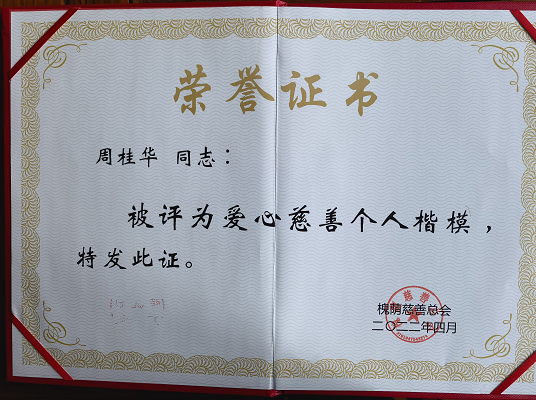 荣誉证书
周桂华 同志：
被评为爱心慈善个人楷模，
特发此证。
槐荫慈善总会
二〇二二年四月